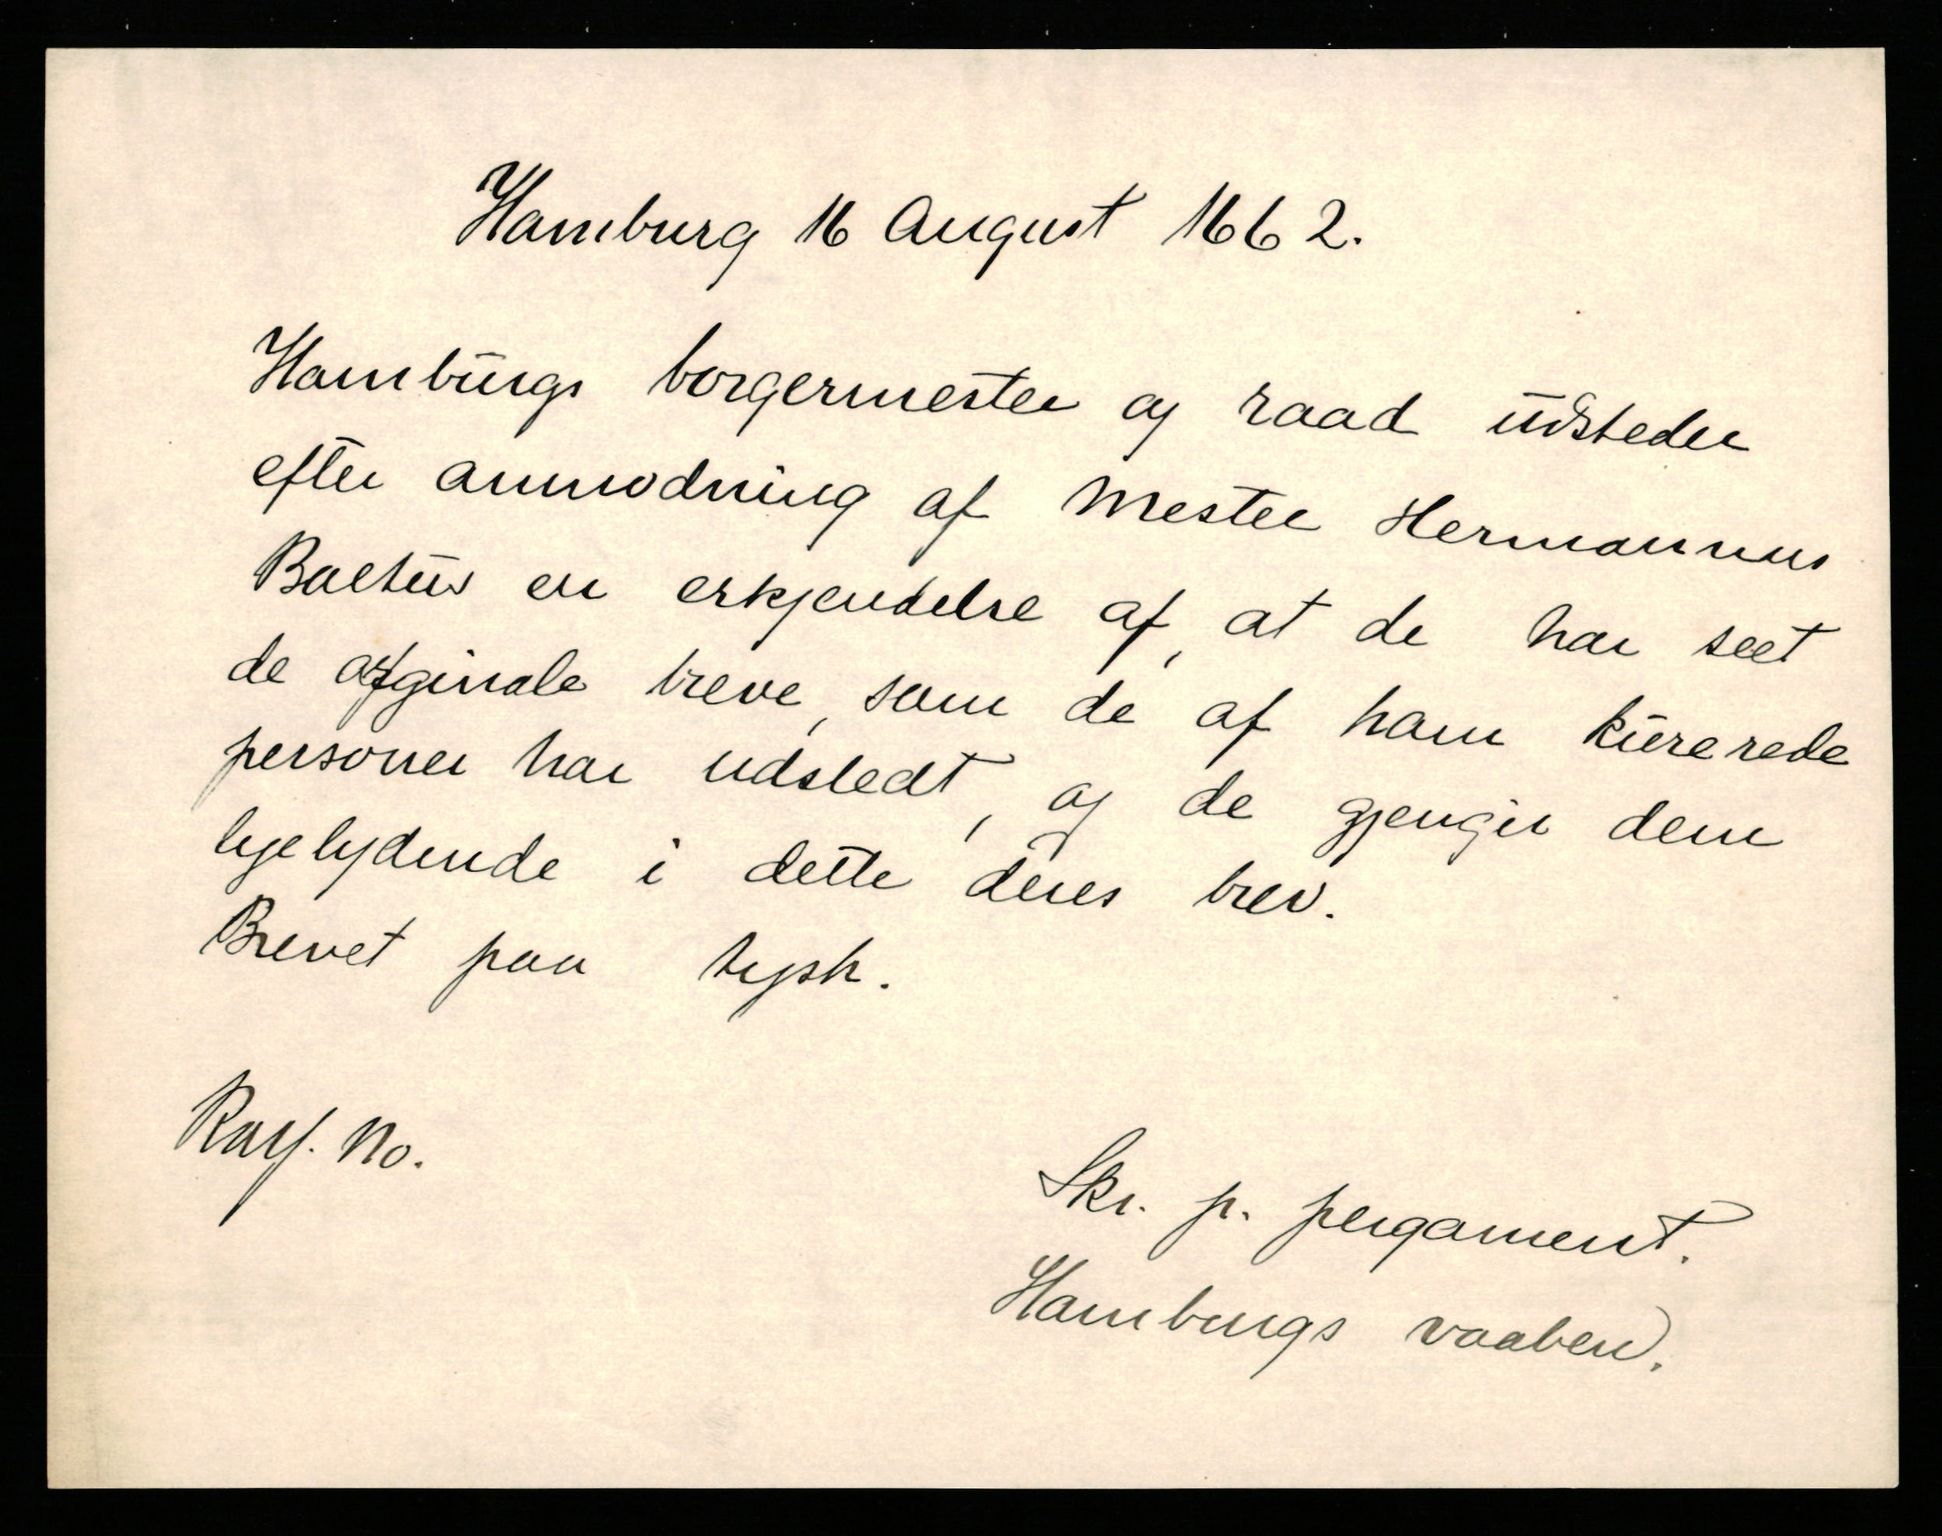 Hamburg 16 August 1662.
Hambūrgs borgermester og raad ūdsteder
efter anmodning af Mester Hermannus
en erkjendelse af, at de har seet
de orginale breve, som de af ham kūrerede
personer har udstedt, og de gjengir dem
lydende i dette deres brev.
Brevet paa tysk.
No.
Skr. p. pergament.
Hamburgs vaaben.